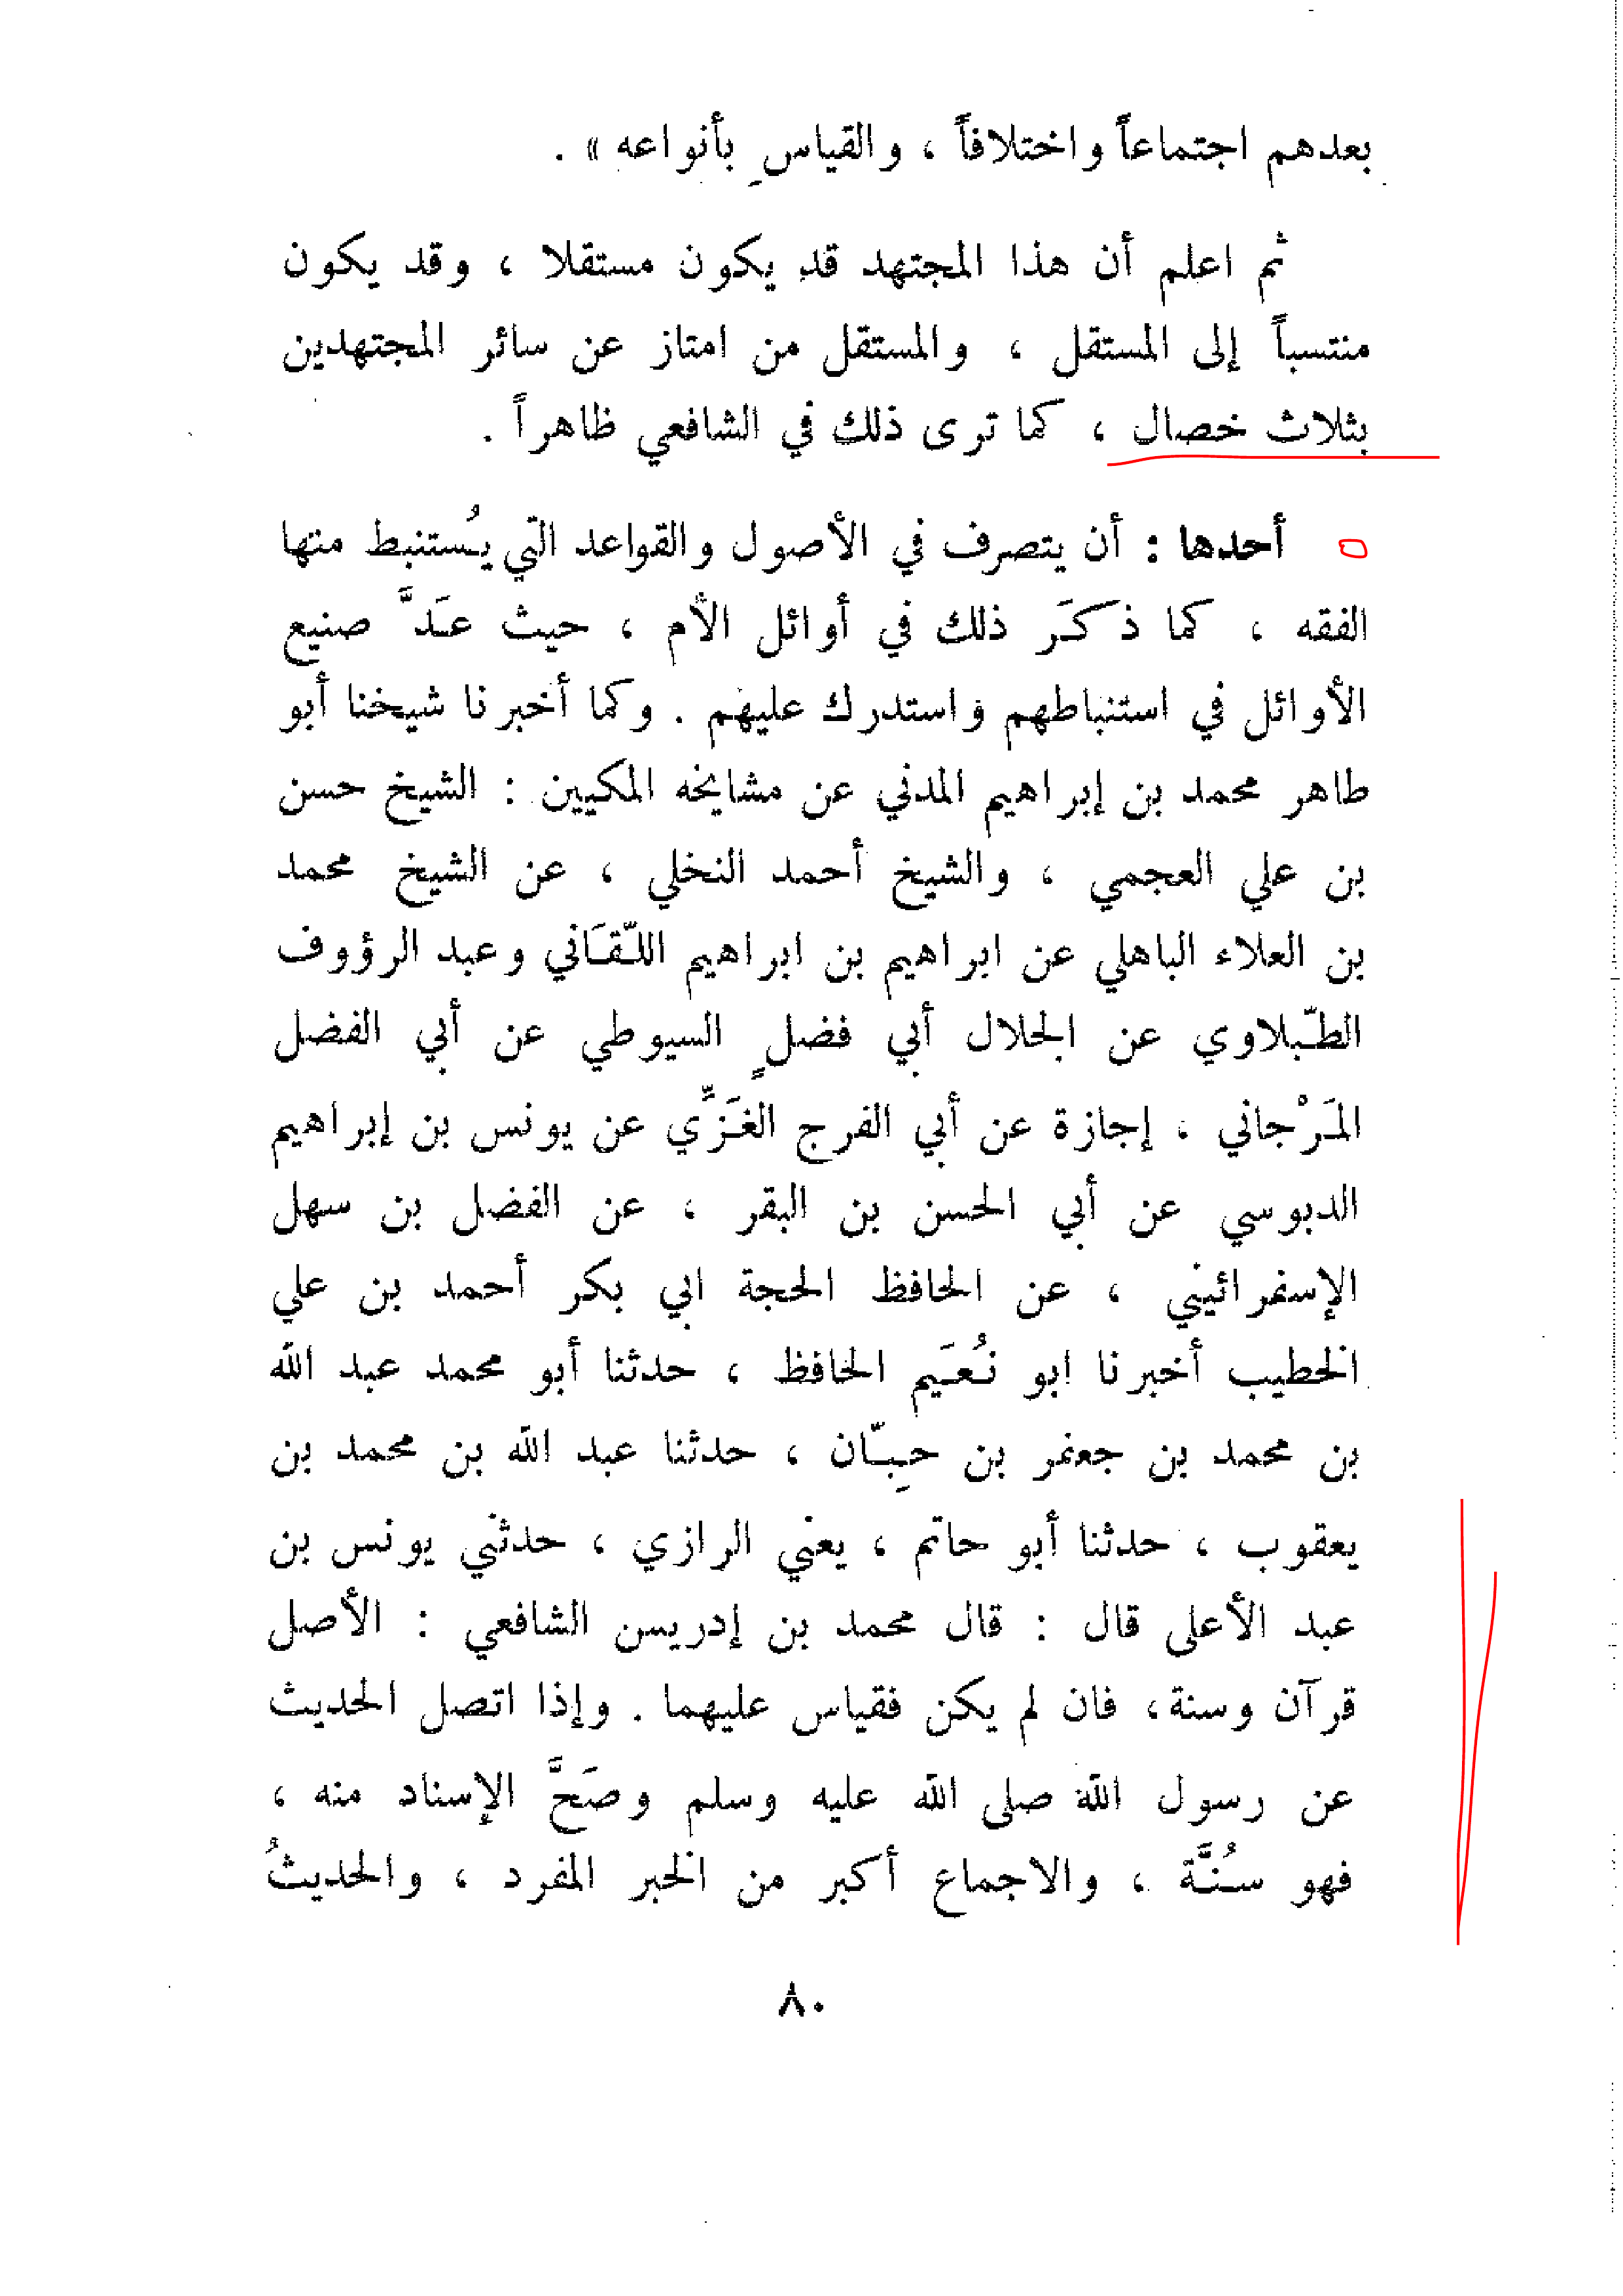 بعدهم اجتماعاً واختلافاً ، والقياسِ بأنواعه » .
ثم اعلم أن هذا المجتهد قد يكون مستقلا ، وقد يكون
منتسباً إلى المستقل ، والمستقل من امتاز عن سائر المجتهدين
بثلاث خصال ، كما ترى ذلك في الشافعي ظاهراً .
أحدها : أن يتصرف في الأصول والقواعد التي يُستنبط منها
الفقه ، كما ذكَر ذلك في أوائل الأم ، حيث عَدَّ صنيع
الأوائل في استنباطهم واستدرك عليهم . وكما أخبرنا شيخنا أبو
طاهر محمد بن إبراهيم المدني عن مشايخه المكيين : الشيخ حسن
بن علي العجمي ، والشيخ أحمد النخلي ، عن الشيخ محمد
بن العلاء الباهلي عن ابراهيم بن ابراهيم اللّقَاني وعبد الرؤوف
الطّبلاوي عن الجلال أبي فضلٍ السيوطي عن أبي الفضل
المَرْجاني ، إجازة عن أبي الفرج الغَزِّي عن يونس بن إبراهيم
الدبوسي عن أبي الحسن بن البقر ، عن الفضل بن سهل
الإسفرائيني ، عن الحافظ الحجة ابي بكر أحمد بن علي
الخطيب أخبرنا ابو نُعَيم الحافظ ، حدثنا أبو محمد عبد الله
بن محمد بن جعفر بن حِبّان ، حدثنا عبد الله بن محمد بن
يعقوب ، حدثنا أبو حاتم ، يعني الرازي ، حدثني يونس بن
عبد الأعلى قال : قال محمد بن إدريس الشافعي : الأصل
قرآن وسنة، فان لم يكن فقياس عليهما . وإذا اتصل الحديث
عن رسول الله صلى الله عليه وسلم وصَحَّ الإسناد منه ،
فهو سُنَّة ، والاجماع أكبر من الخبر المفرد ، والحديثُ
٨٠